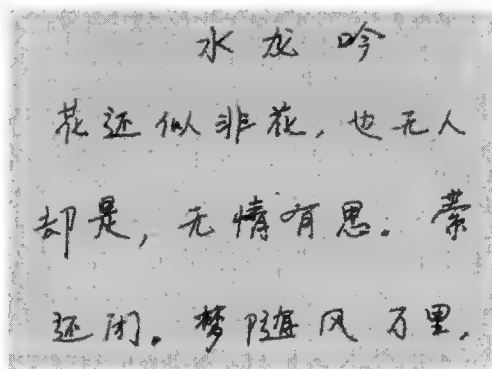 水龙吟
花还似非花，也无人
却是，无情有思。萦
还闭。梦随风万里，